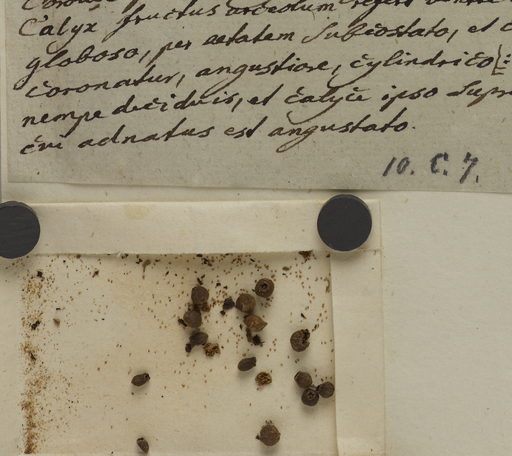 Calyx fructus urceolum
globoso, per aetatem subcostato, et
coronatur, angustiore, cylindrico
nempe deciduis, et calyci ipso supr
cui adnatus est angustato.
10. C. 7.